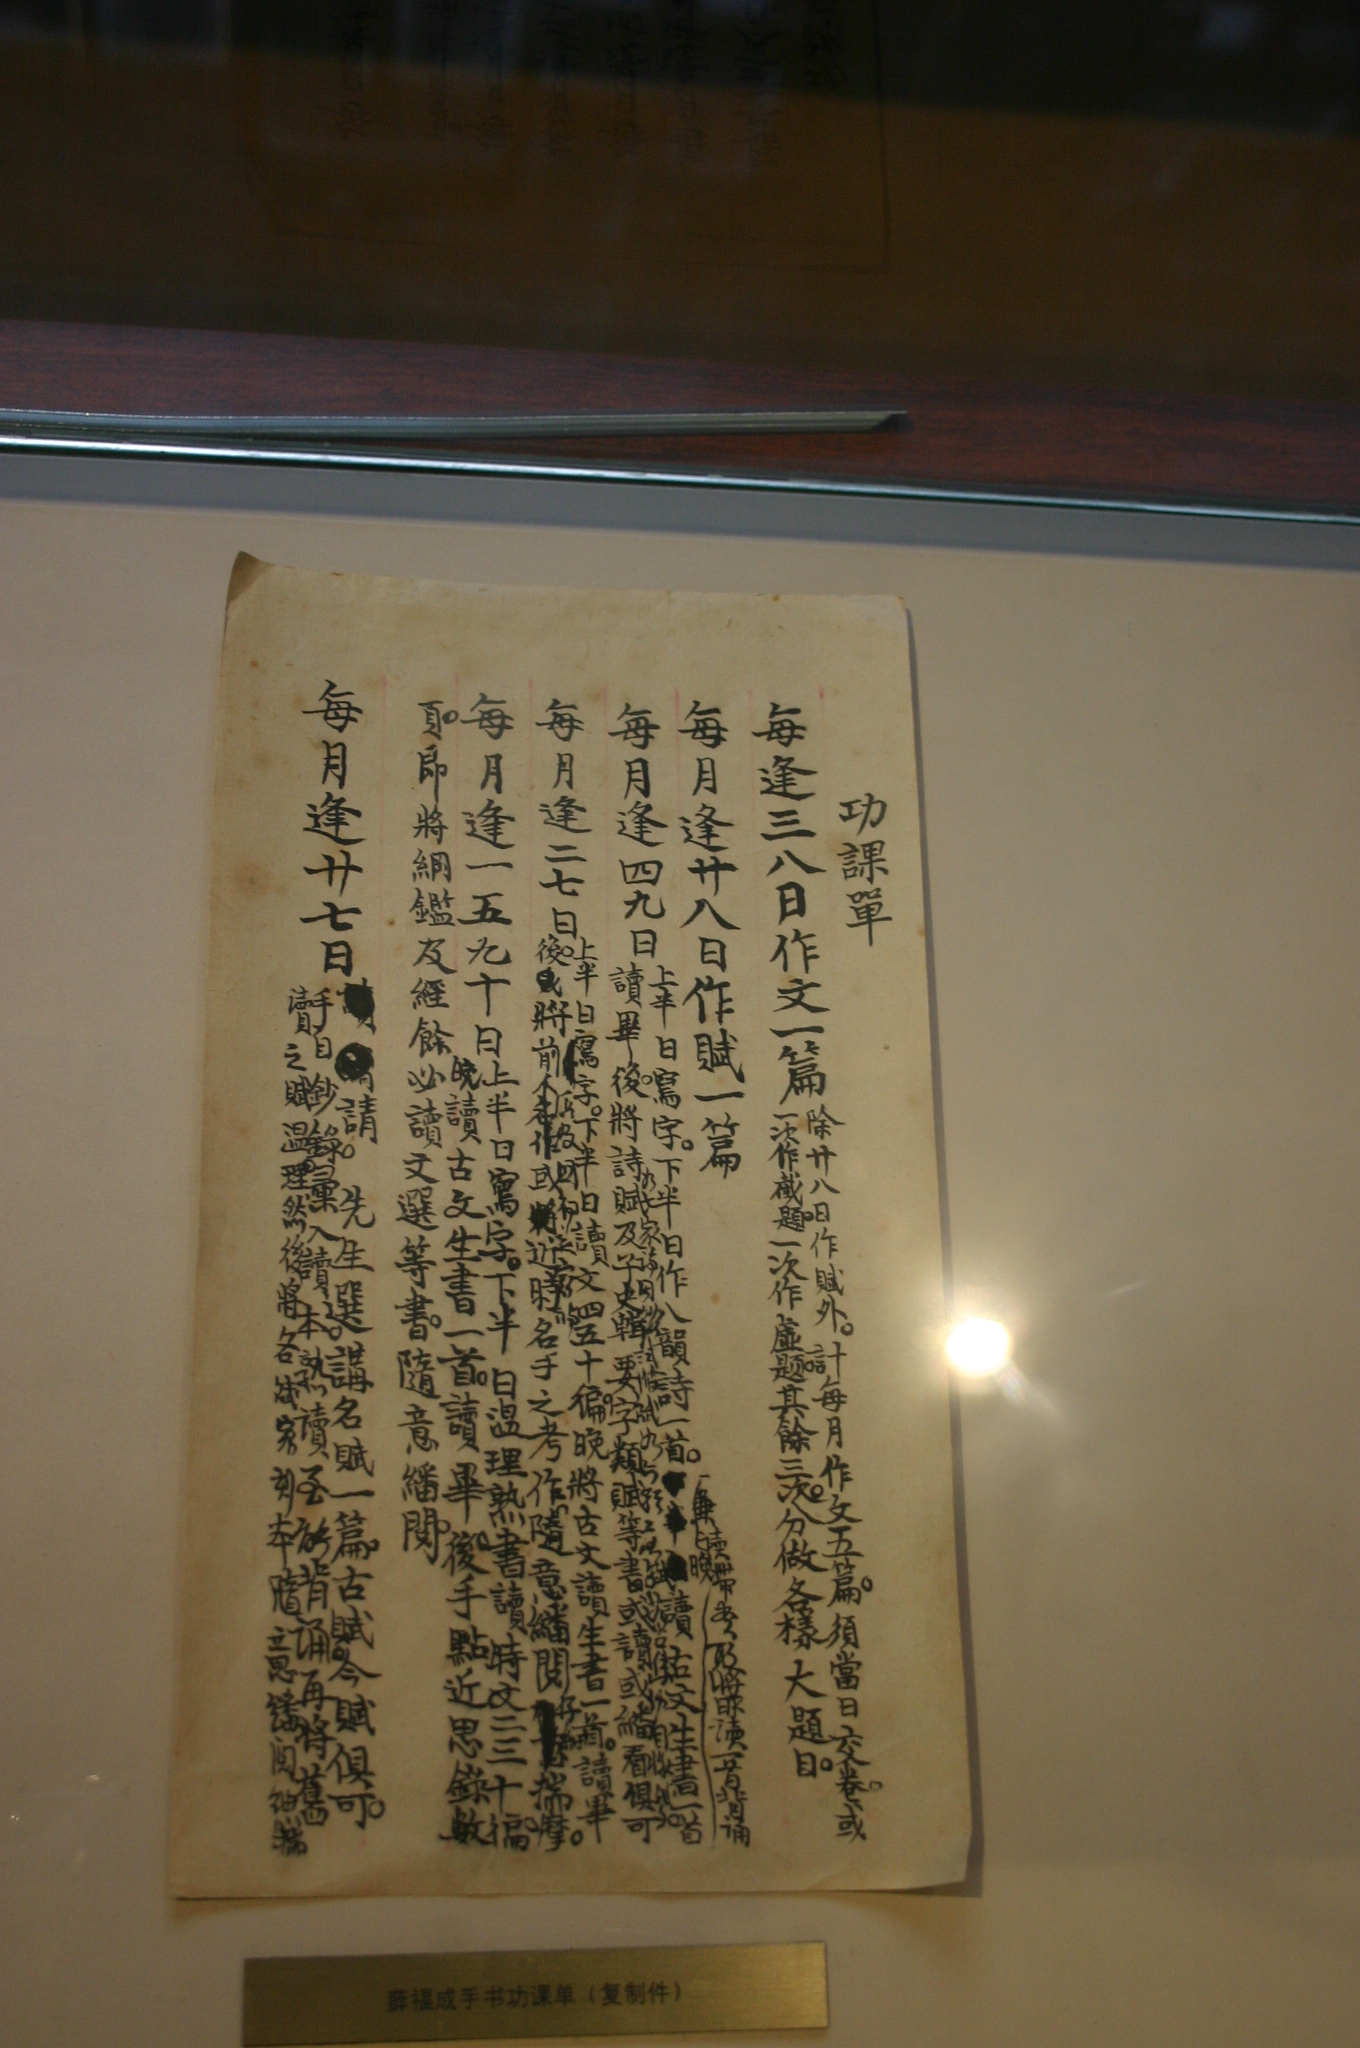 功課單
每逢三八日作文一篇
除廿八日作賦外。計每月作文五篇。須當日交卷。或
一次作截題一次作虛題其餘三次。分做各樣大題目。
每月逢廿八日作賦一篇
每月逢四九日
上半日寫字。下半日作八韻詩一首。讀古文生書一首
讀畢後。將詩賦及子史輯要。字類賦等書或讀或繙看俱可
每月逢二七日。
上半日寫字。下半日讀文四五十徧。晚將古文讀生書一首。讀畢
後將前或近時名手之考作隨意繙閱揣摩。
每月逢一五九十日
上半日寫字。下半日温理熟書讀時文二三十徧。
晚讀古文生書一首。讀畢後手點近思錄數
頁。即將綱鑑及經餘必讀文選等書。隨意繙閱
每月逢廿七日
請。先生選講名賦一篇。古賦今賦俱可。
手自鈔錄。彙入讀本。熟讀至能背誦再將舊
讀之賦温理然後將各家刻本隨意繙閱
薛福成手书功课单（复制件）